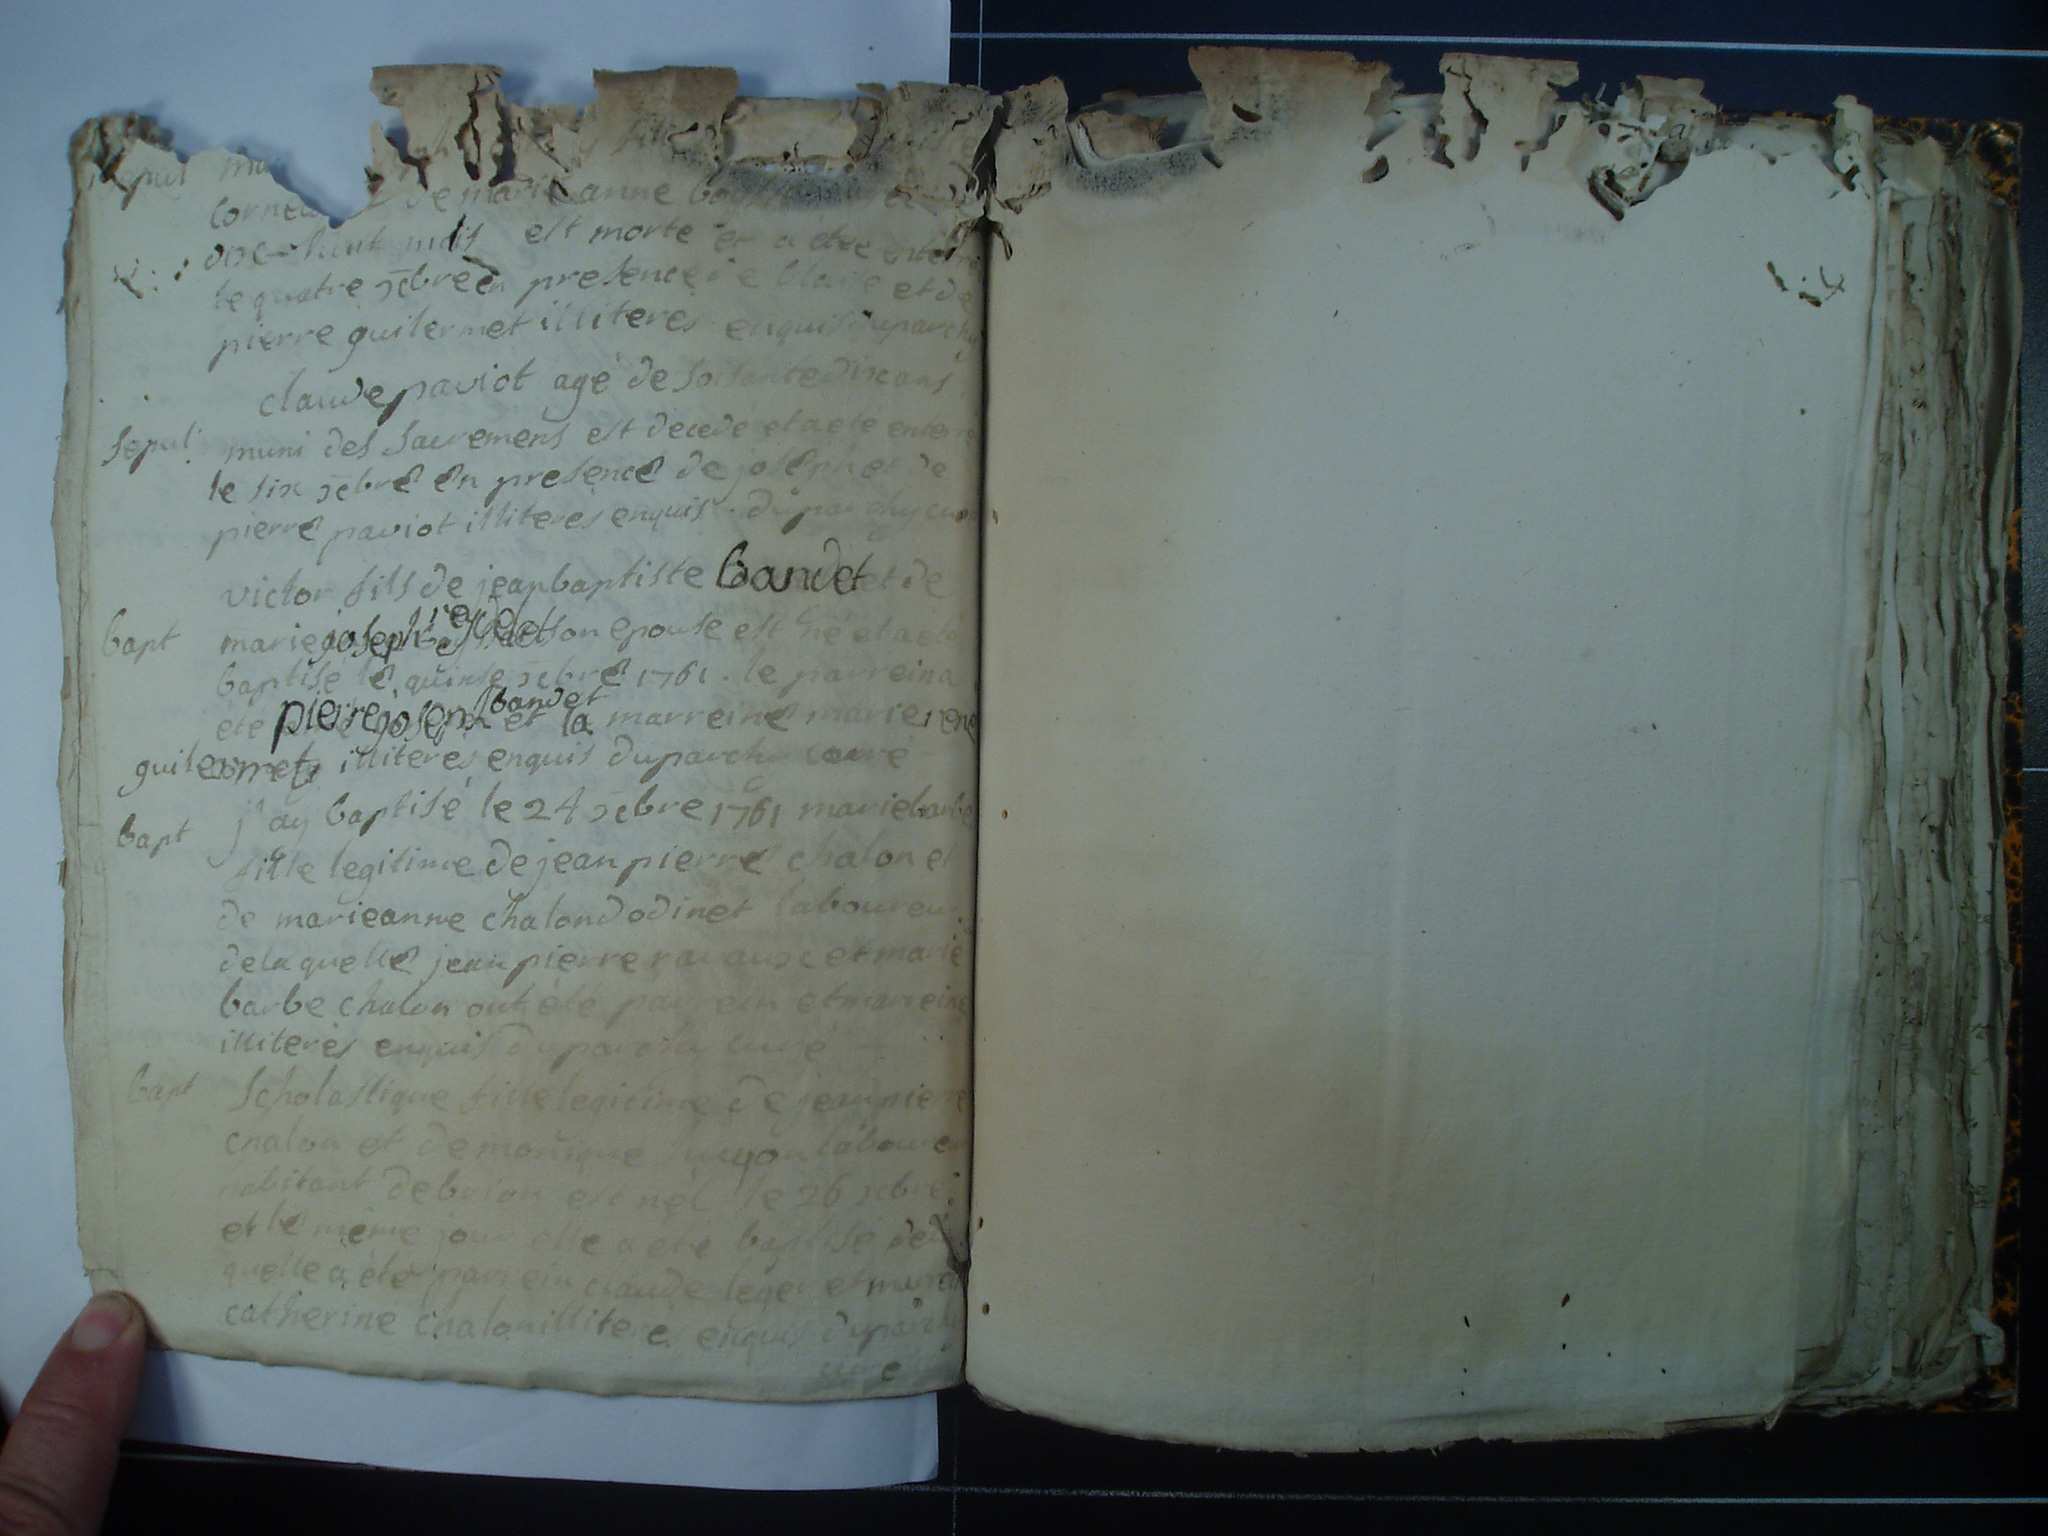 sepul
corne de marie anne
dix-huit mois est morte et a eté enterré
le quatre xbre en presence de blaise et de
pierre guilermet illiteres enquis duparchy
claude paviot agé de soisante dix ans
sepul. muni des sacremens est decedé et a eté enterré
le six xbre en presence de joseph et de
pierre paviot illiteres enquis. duparchy curé
victor fils de jean baptiste bandet et de
bapt marie joseph son epouse est né et a eté
baptisé le quinse xbre 1761. le parrein a
eté pierre joseph bandet et la marreine marie rene
guilermet illiteres enquis duparchy curé
bapt j'ay baptisé le 24 xbre 1761 marie barbe
fille legitime de jean pierre chalon et
de marie anne chalon dodinet laboureur
de la quelle jean pierre ravaux et marie
barbe chalon ont été parrein et marreine
illiterés enquis duparchy curé
bapt scholastique fille legitime de jean pierre
chalon et de monique laboureur
habitant de brion est né le 26 xbre
et le même jour elle a eté baptisé de la
quelle a été parrein claude leger et marei
catherine chalon illitere enquis duparchy
curé